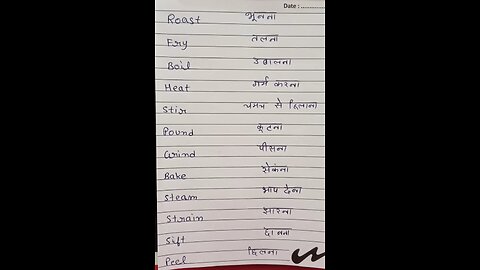 Date :
Roast भूनना
Fry तलना
Boil उबालना
Heat गर्म करना
Stir चमच से हिलाना
Pound कूटना
Grind पीसना
Bake सेकंना
Steam भाप देना
Strain झारना
Sift छानना
Peel छिलना